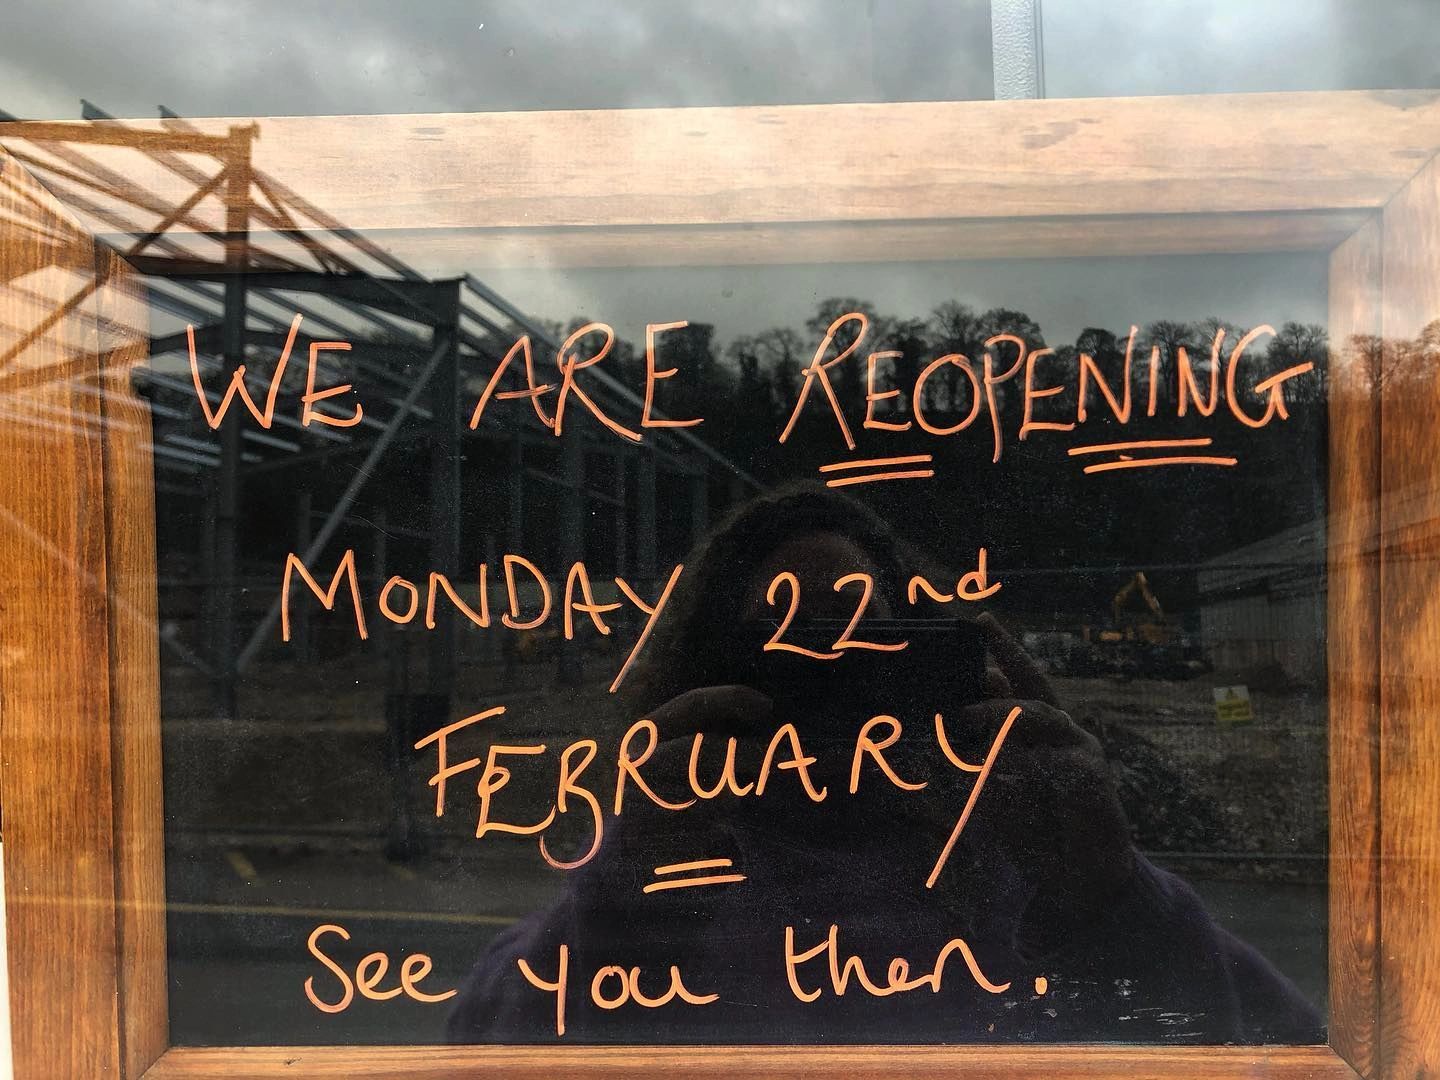 WE ARE REOPENING
MONDAY 22nd
FEBRUARY
See you then.